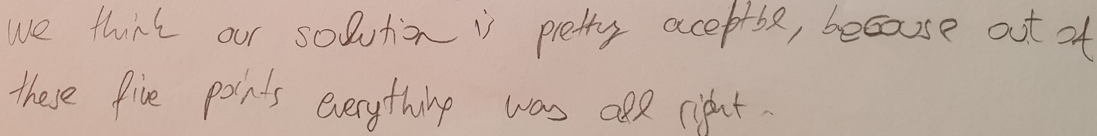 we think our solution is pretty aceptbl, because out of
these five points everything was all right.